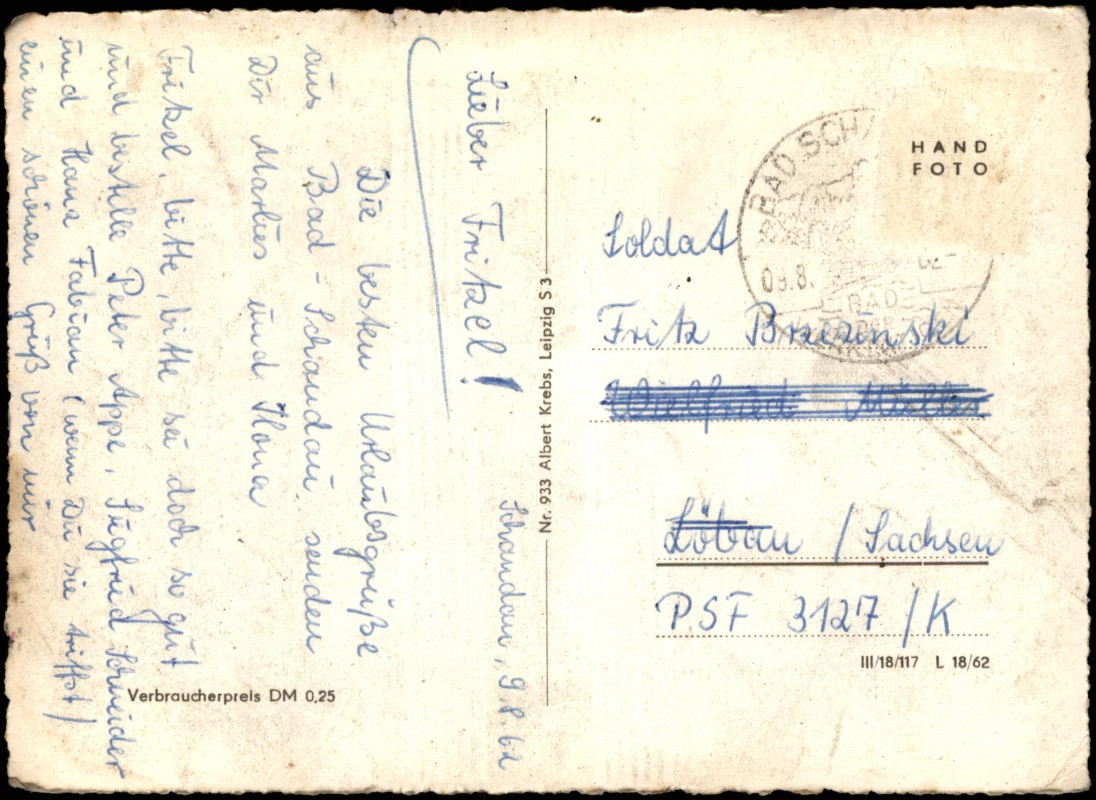 Schandau, 9.8.62
Lieber Fritzel!
Die besten Urlaubsgrüße
aus Bad-Schandau senden
Dir Marlies und Ilona
Fritzel, bitte, bitte sei doch so gut
und bestelle Peter Appe, Siegfried Schneider
und Hans Fabian (wenn Du sie triffst)
einen schönen Gruß von mir
Verbraucherpreis DM 0,25
Nr. 933 Albert Krebs, Leipzig S 3
HAND
FOTO
BAD SCH
09.8. 62-
BADE
Soldat
Fritz Brzezinski
Wielfried Müller
Löbau / Sachsen
P.S.F 3127 / K
III/18/117 L 18/62